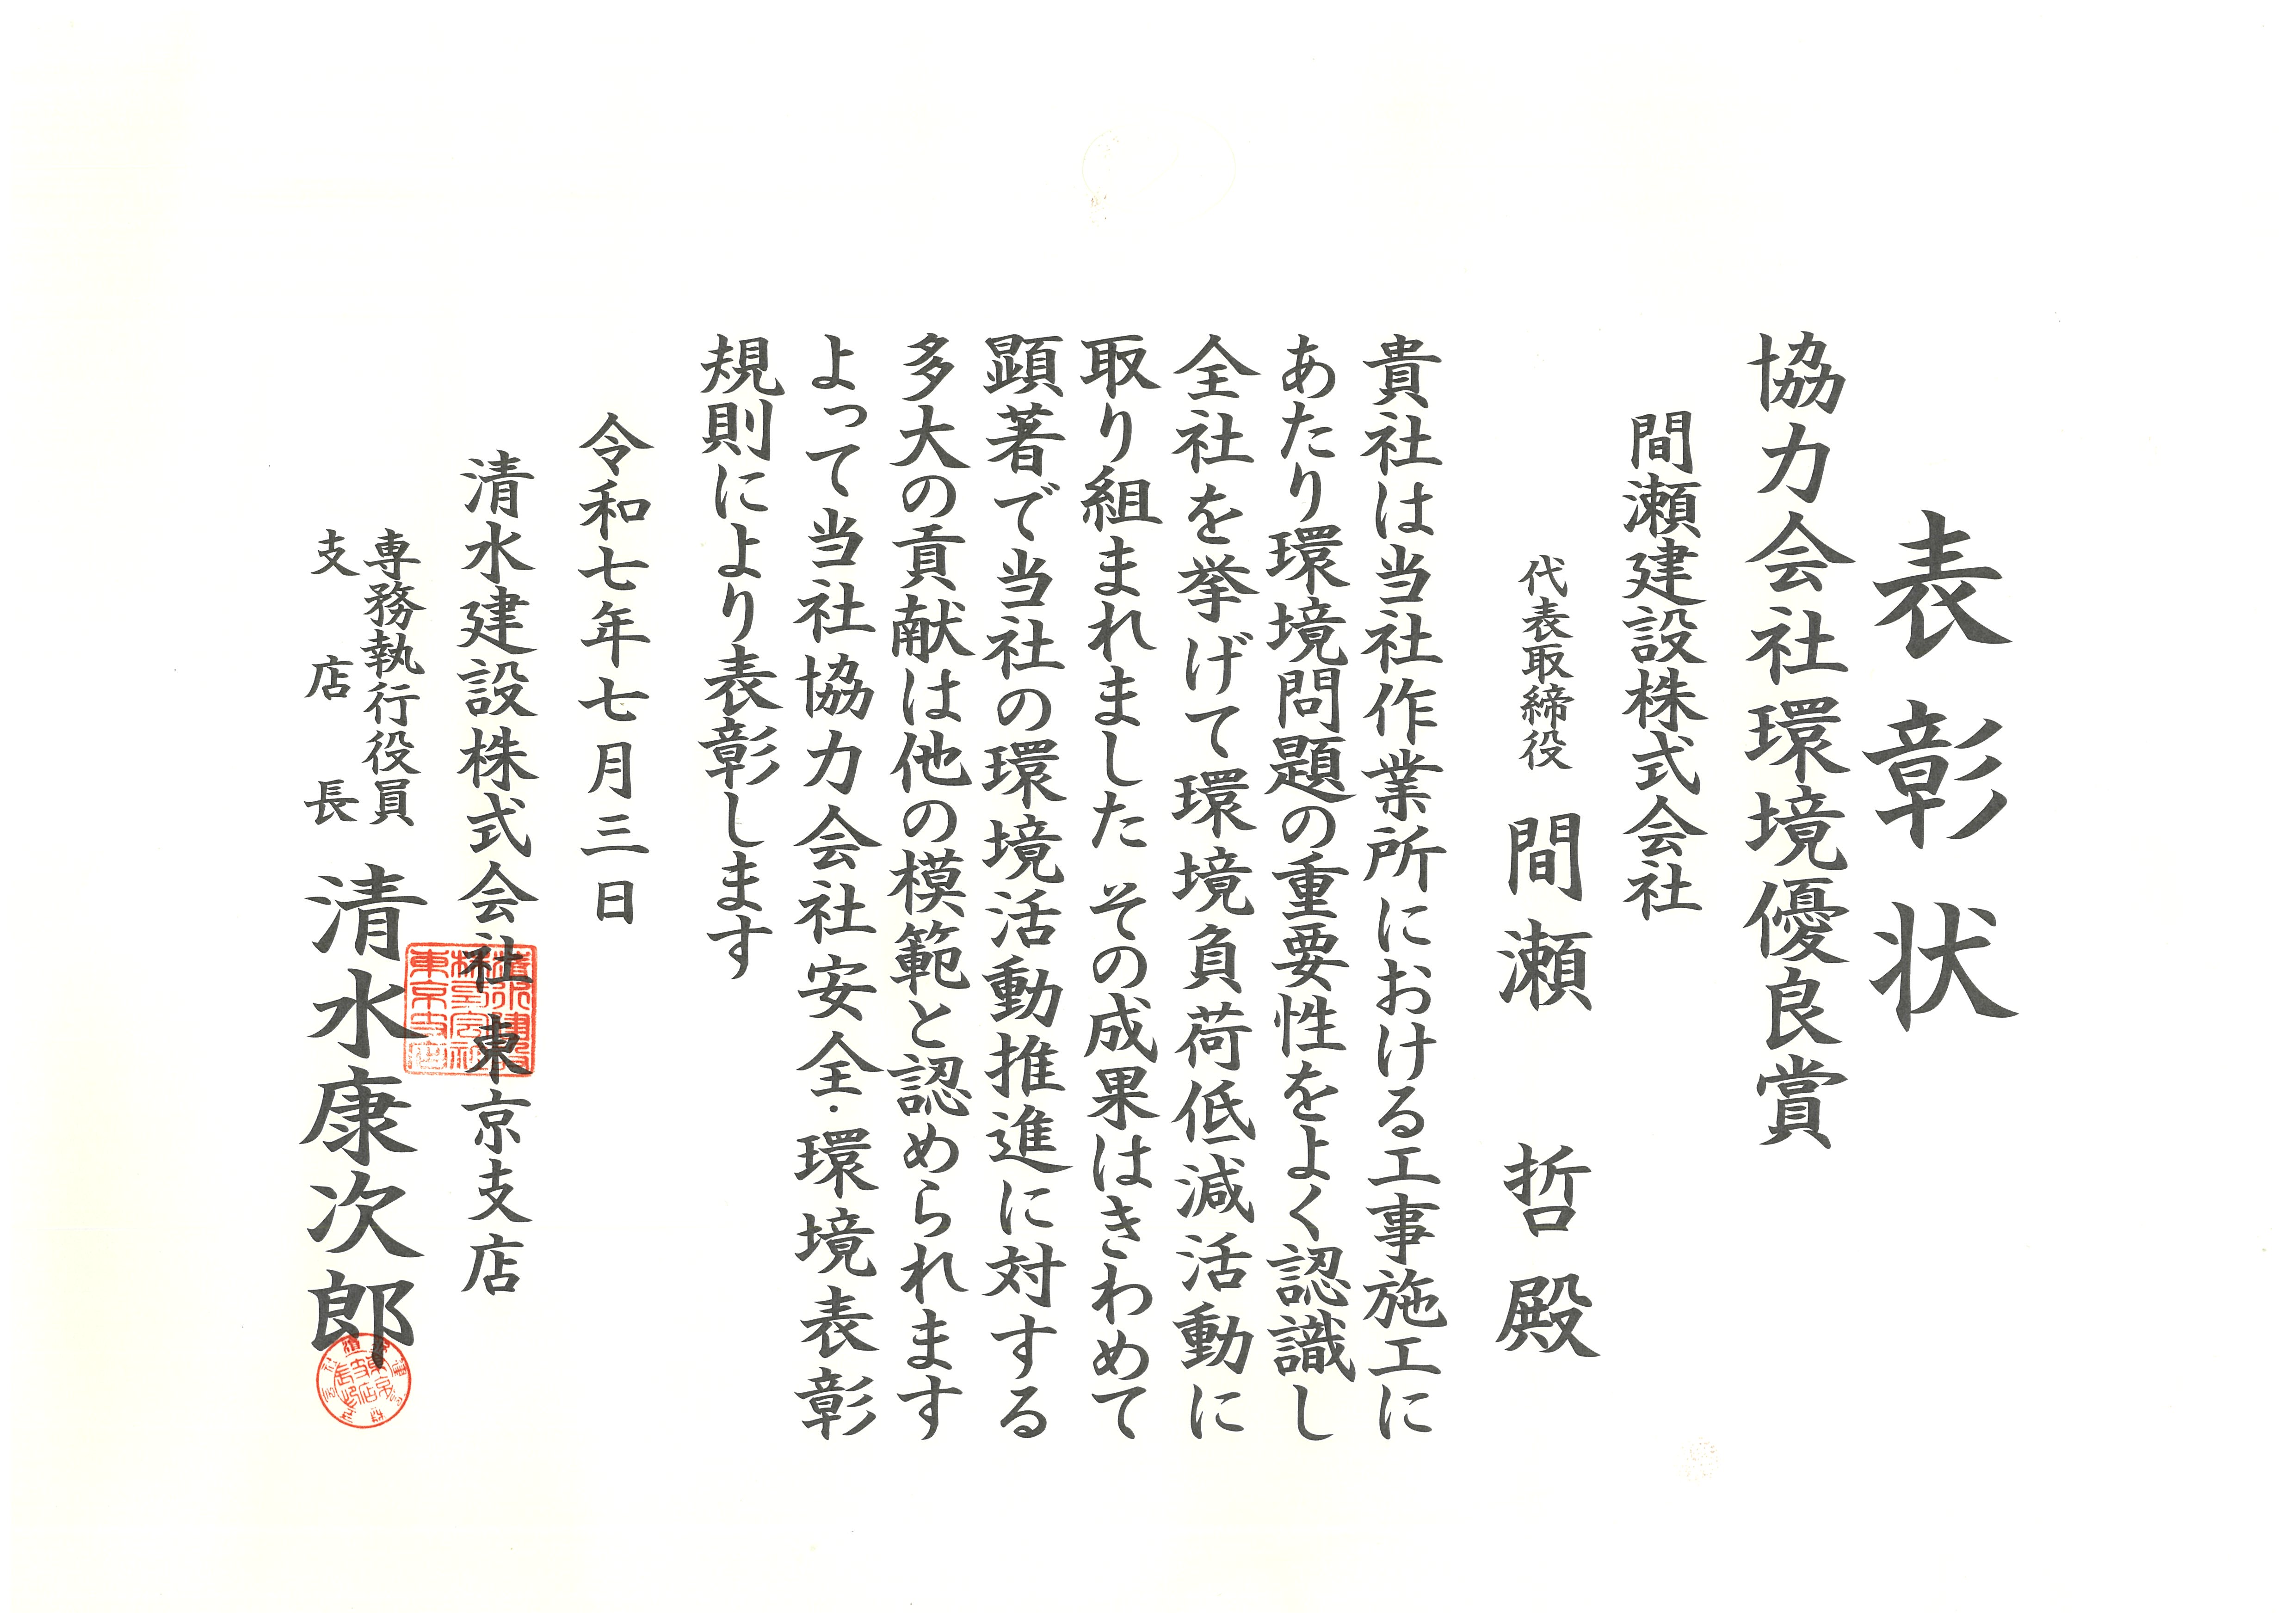 表彰状
協力会社環境優良賞
間瀬建設株式会社
代表取締役 間瀬 哲殿
貴社は当社作業所における工事施工に
あたり環境問題の重要性をよく認識し
全社を挙げて環境負荷低減活動に
取り組まれました その成果はきわめて
顕著で当社の環境活動推進に対する
多大の貢献は他の模範と認められます
よって当社協力会社安全・環境表彰
規則により表彰します
令和七年七月三日
清水建設株式会社東京支店
専務執行役員
支店長 清水康次郎
清水建設
株式会社
東京支店